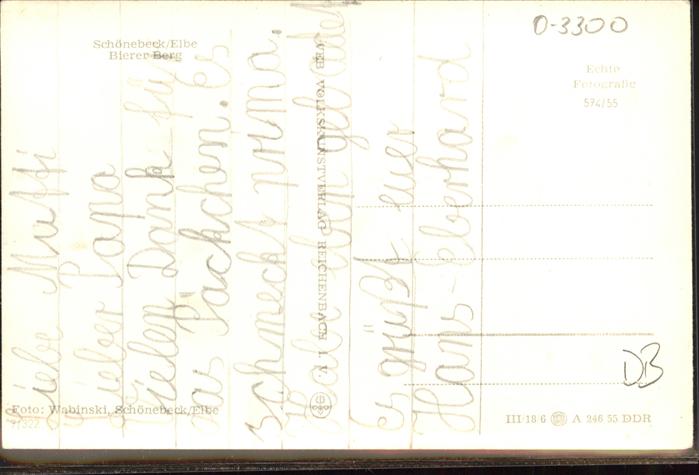 O-3300
Schönebeck/Elbe
Bierer Berg
Echte
Fotografie
574/55
VEB VOLKSKUNSTVERLAG REICHENBACH I. V.
Liebe Mutti
Lieber Papa
Vielen Dank für
das Päckchen. Es
schmeckt prima.
Habe eben gebadet
Es grüßt euer
Hans-Eberhard
DB
Foto: Wabinski, Schönebeck/Elbe
III/18/6 A 246 55 DDR